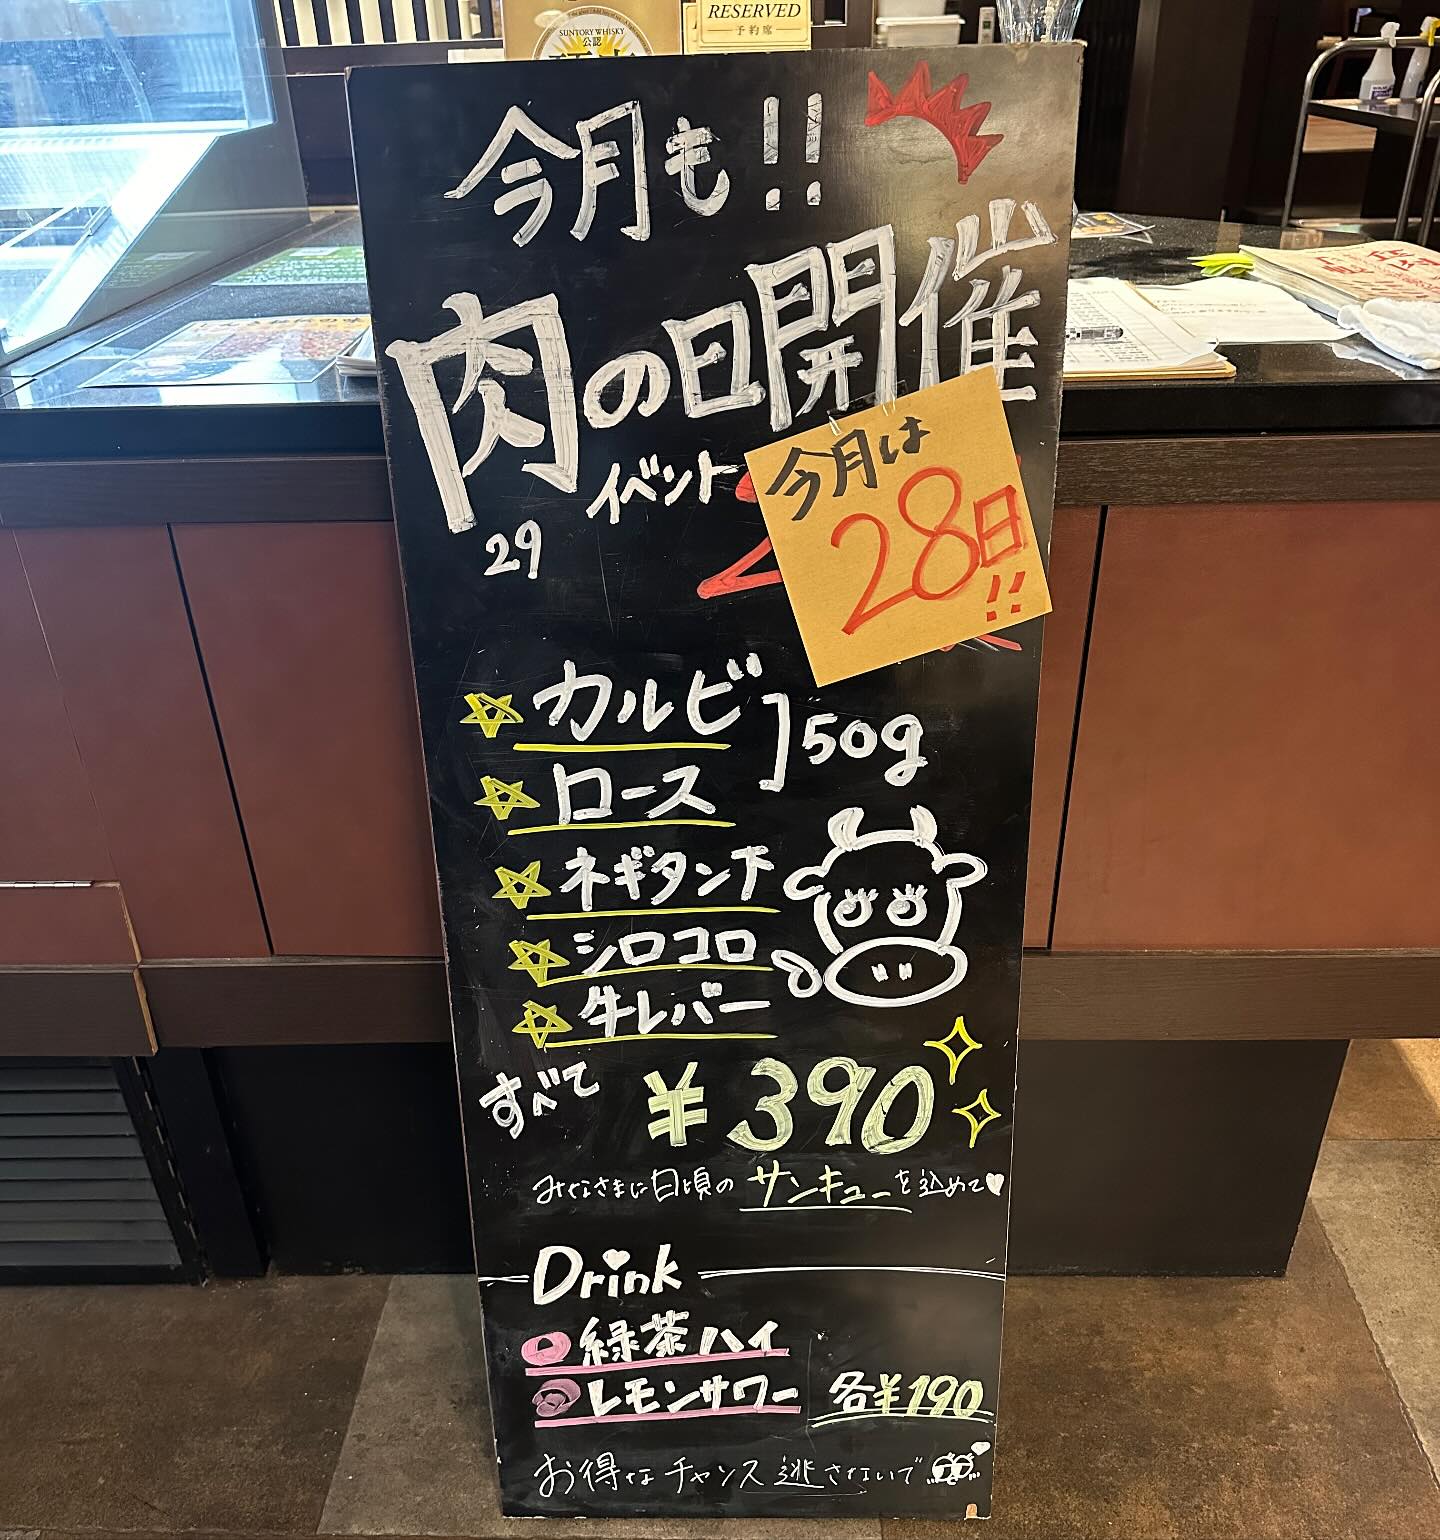 SUNTORY WHISKY
公認
RESERVED
予約席
今月も!!
肉の日開催
29
イベント
今月は
28日!!
カルビ
ロース
50g
ネギタン下
シロコロ
牛レバー
すべて ¥390
みなさまに日頃の サンキューを込めて
Drink
緑茶ハイ
レモンサワー 各¥190
お得なチャンス逃さないで